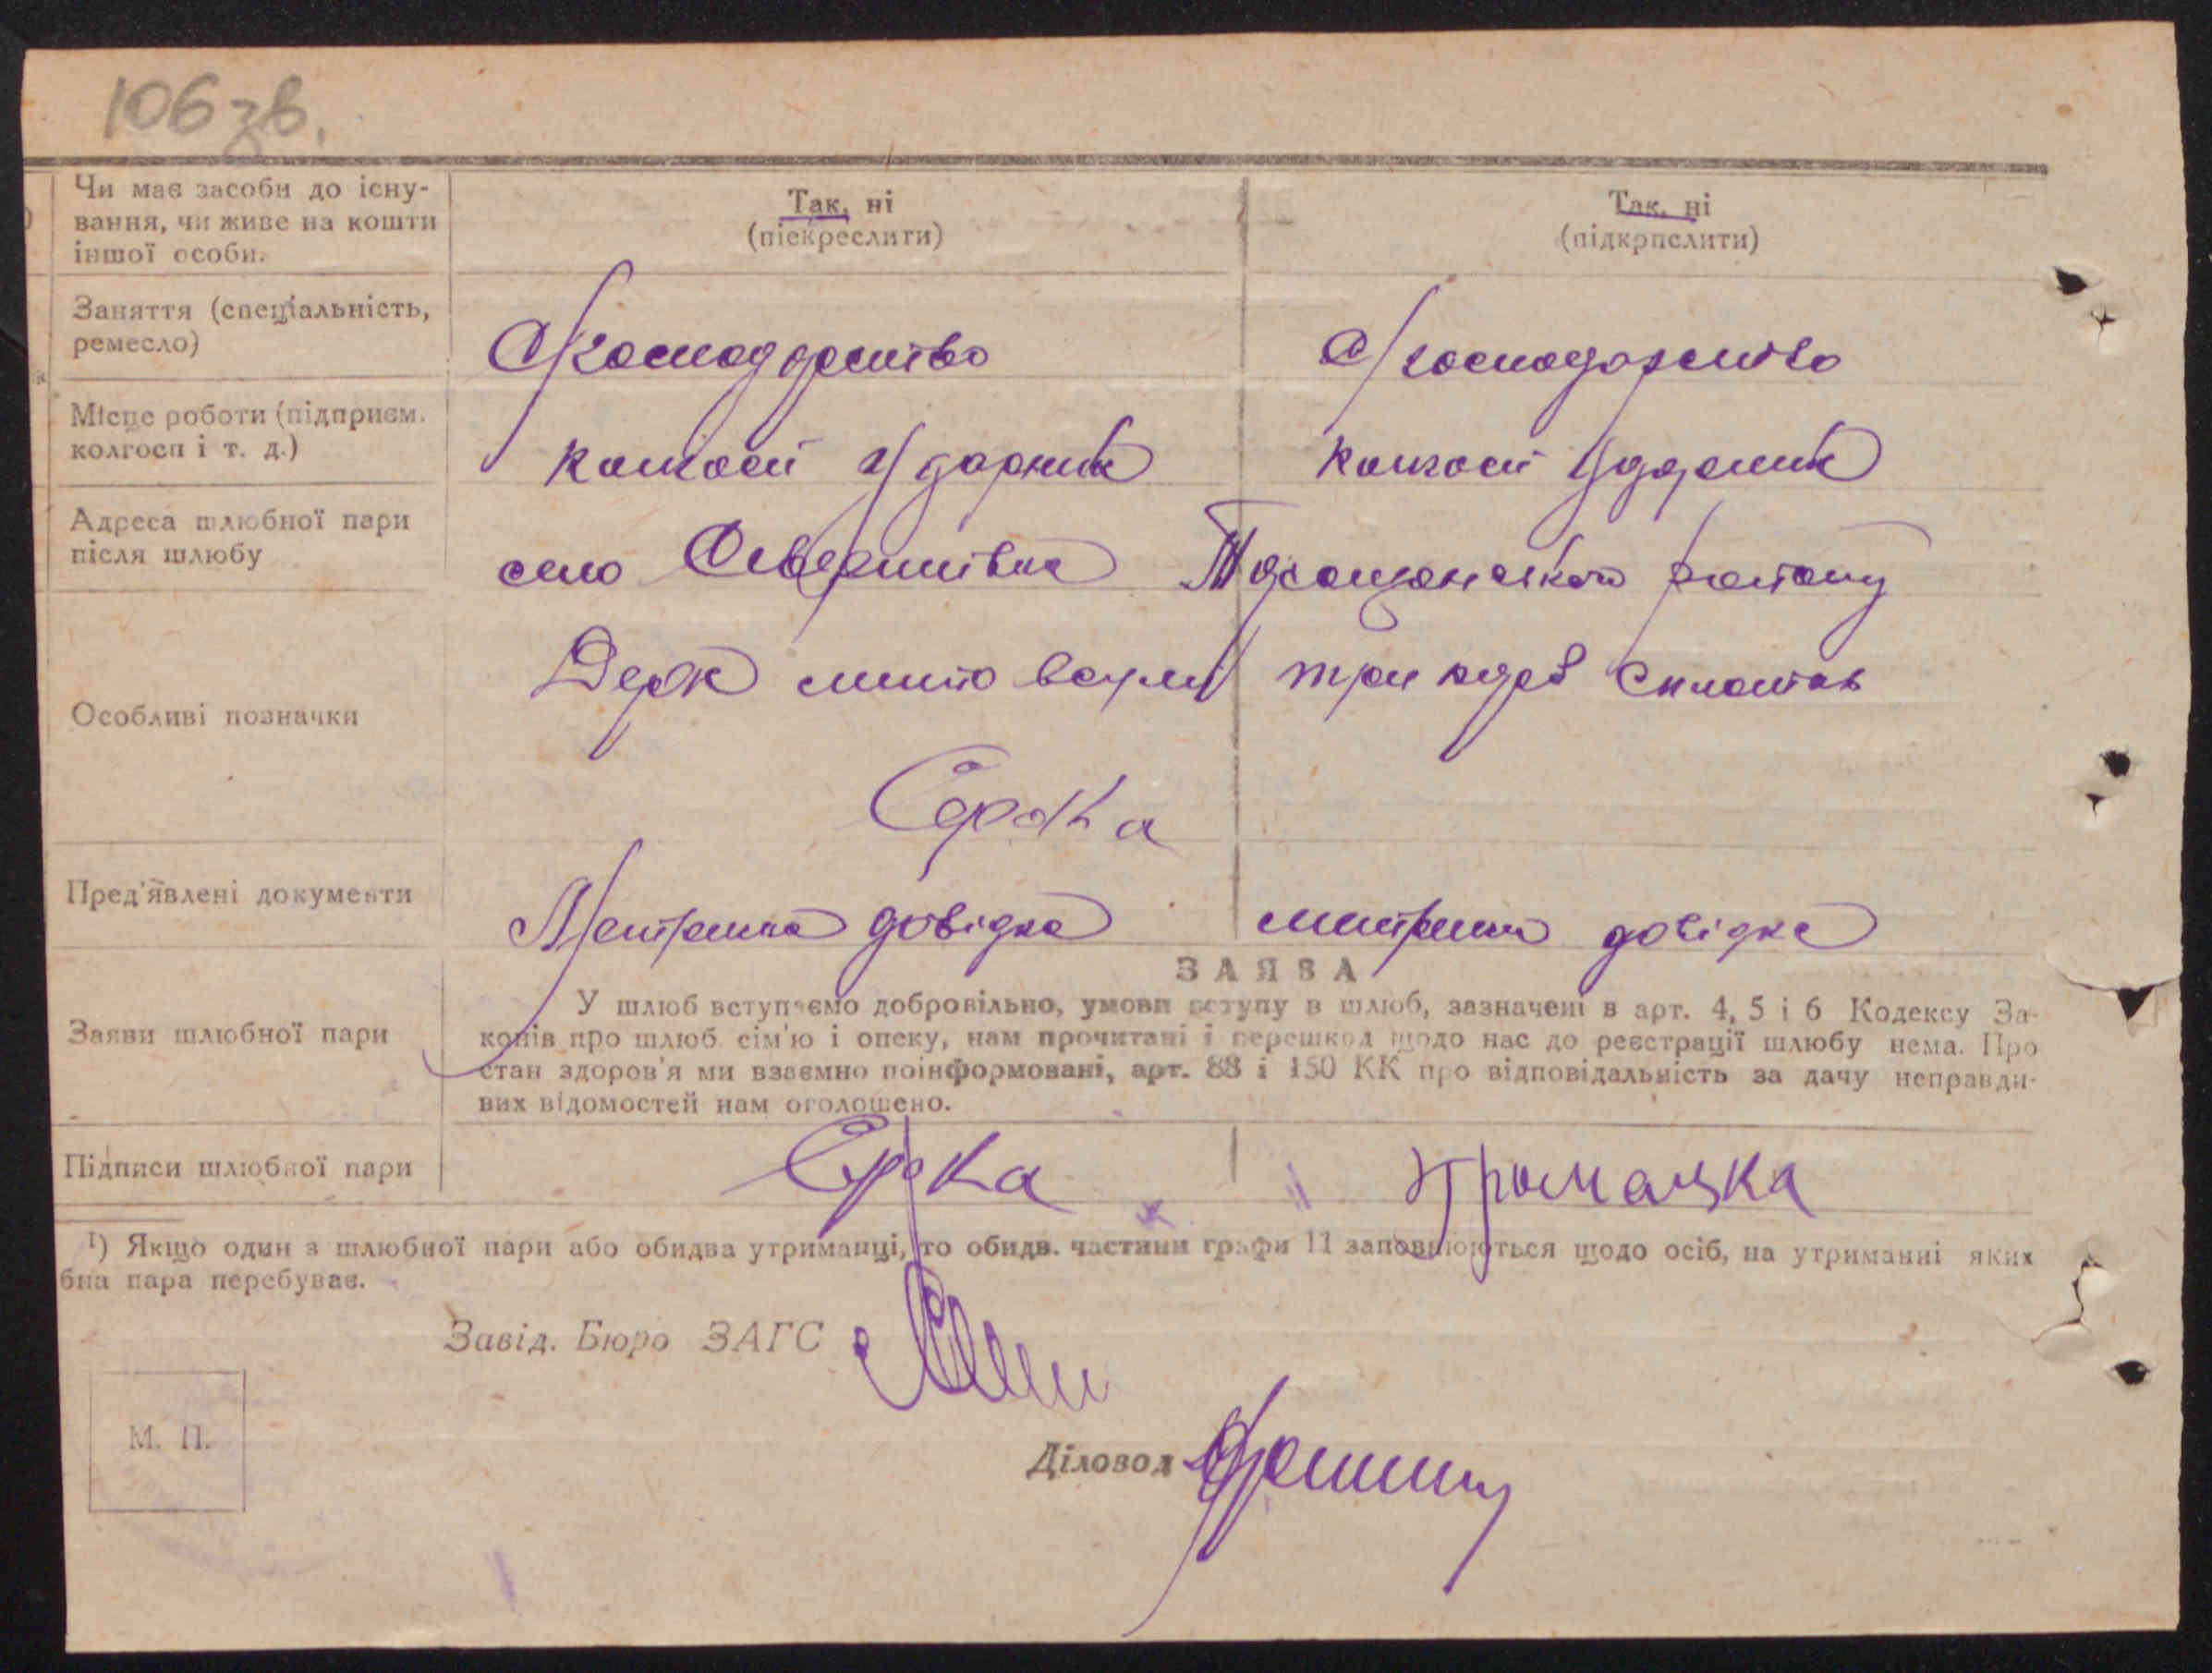 106 зв.
Чи має засоби до існу-
вання, чи живе на кошти
іншої особи.
Так, ні
(піекреслити)
Так, ні
(підкрпслити)
Заняття (спеціальність,
ремесло)
Господарство
Господарство
Місце роботи (підприєм.
колгосп і т. д.)
колгосп Ударник
колгосп Ударник
Адреса шлюбної пари
після шлюбу
село
району
Особливі позначки
Держ мито три карб сплатив
Пред'явлені документи
Метрична довідка
метрична довідка
ЗАЯВА
Заяви шлюбної пари
У шлюб вступаємо добровільно, умови вступу в шлюб, зазначені в арт. 4, 5 і 6 Кодексу За-
конів про шлюб сім'ю і опеку, нам прочитані і перешкод щодо нас до реєстрації шлюбу нема. Про
стан здоров'я ми взаємно поінформовані, арт. 88 і 150 КК про відповідальність за дачу неправди-
вих відомостей нам оголошено.
Підписи шлюбної пари
1) Якщо один з шлюбної пари або обидва утриманці, то обидв. частини графи 11 заповнюються щодо осіб, на утриманні яких
бна пара перебуває.
Завід. Бюро ЗАГС
М. П.
Діловод